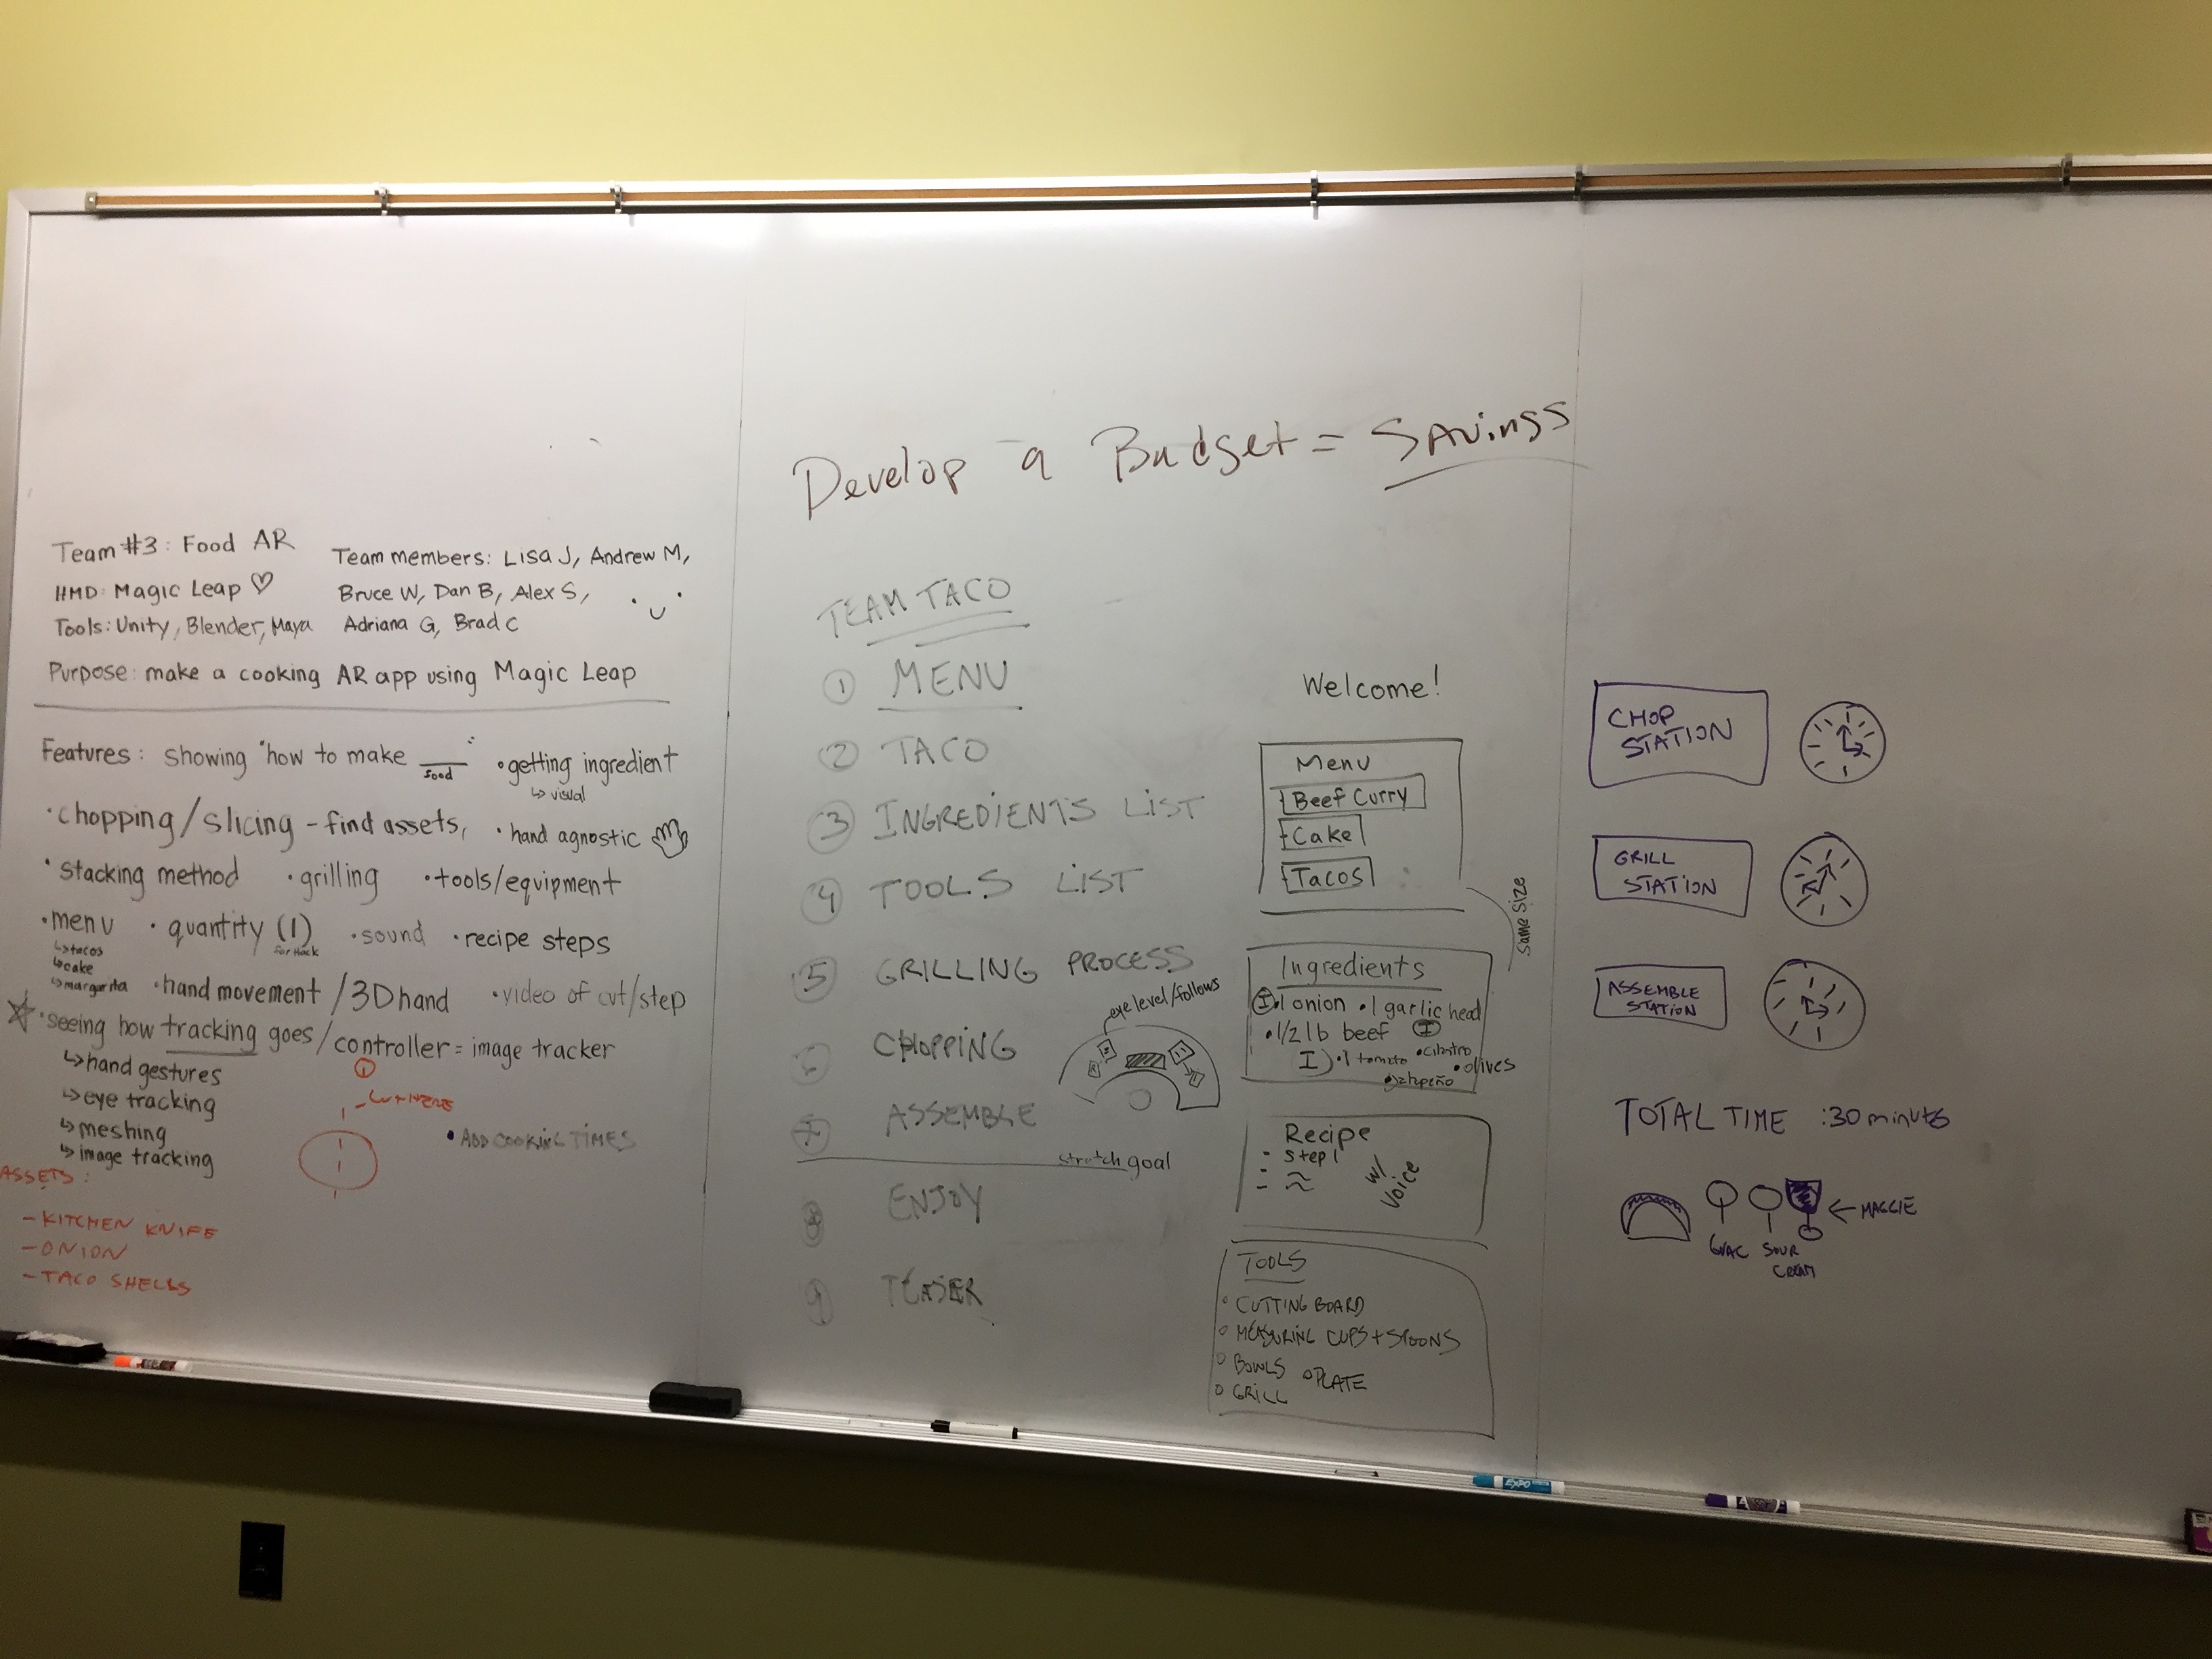 Develop a Budget = Savings
Team #3: Food AR
HMD: Magic Leap ♡
Tools: Unity, Blender, Maya
Team members: Lisa J, Andrew M,
Bruce W, Dan B, Alex S,
Adriana G, Brad C
Purpose: make a cooking AR app using Magic Leap
Features: showing "how to make ____"
food
• getting ingredient
↳ visual
• chopping/slicing - find assets,
• hand agnostic
• stacking method • grilling • tools/equipment
• menu • quantity (1) • sound • recipe steps
for Hack
↳ tacos
↳ cake
↳ margarita
• hand movement / 3D hand • video of cut/step
• seeing how tracking goes / controller = image tracker
↳ hand gestures
↳ eye tracking
↳ meshing
↳ image tracking
• ADD COOKING TIMES
ASSETS:
- KITCHEN KNIFE
- ONION
- TACO SHELLS
TEAM TACO
1 MENU
2 TACO
3 INGREDIENTS LIST
4 TOOLS LIST
5 GRILLING PROCESS
6 CHOPPING
7 ASSEMBLE
stretch goal
8 ENJOY
9 TEASER
eye level/follows
Welcome!
Menu
Beef Curry
Cake
Tacos
Same Size
Ingredients
I • 1 onion • 1 garlic head
• 1/2 lb beef I
I) • 1 tomato • cilantro
• jalapeño • olives
Recipe
- Step 1
w/ Voice
TOOLS
o CUTTING BOARD
o MEASURING CUPS + SPOONS
o BOWLS o PLATE
o GRILL
CHOP
STATION
GRILL
STATION
ASSEMBLE
STATION
TOTAL TIME : 30 minuts
GUAC
SOUR
CREAM
← MAGGIE
EXPO